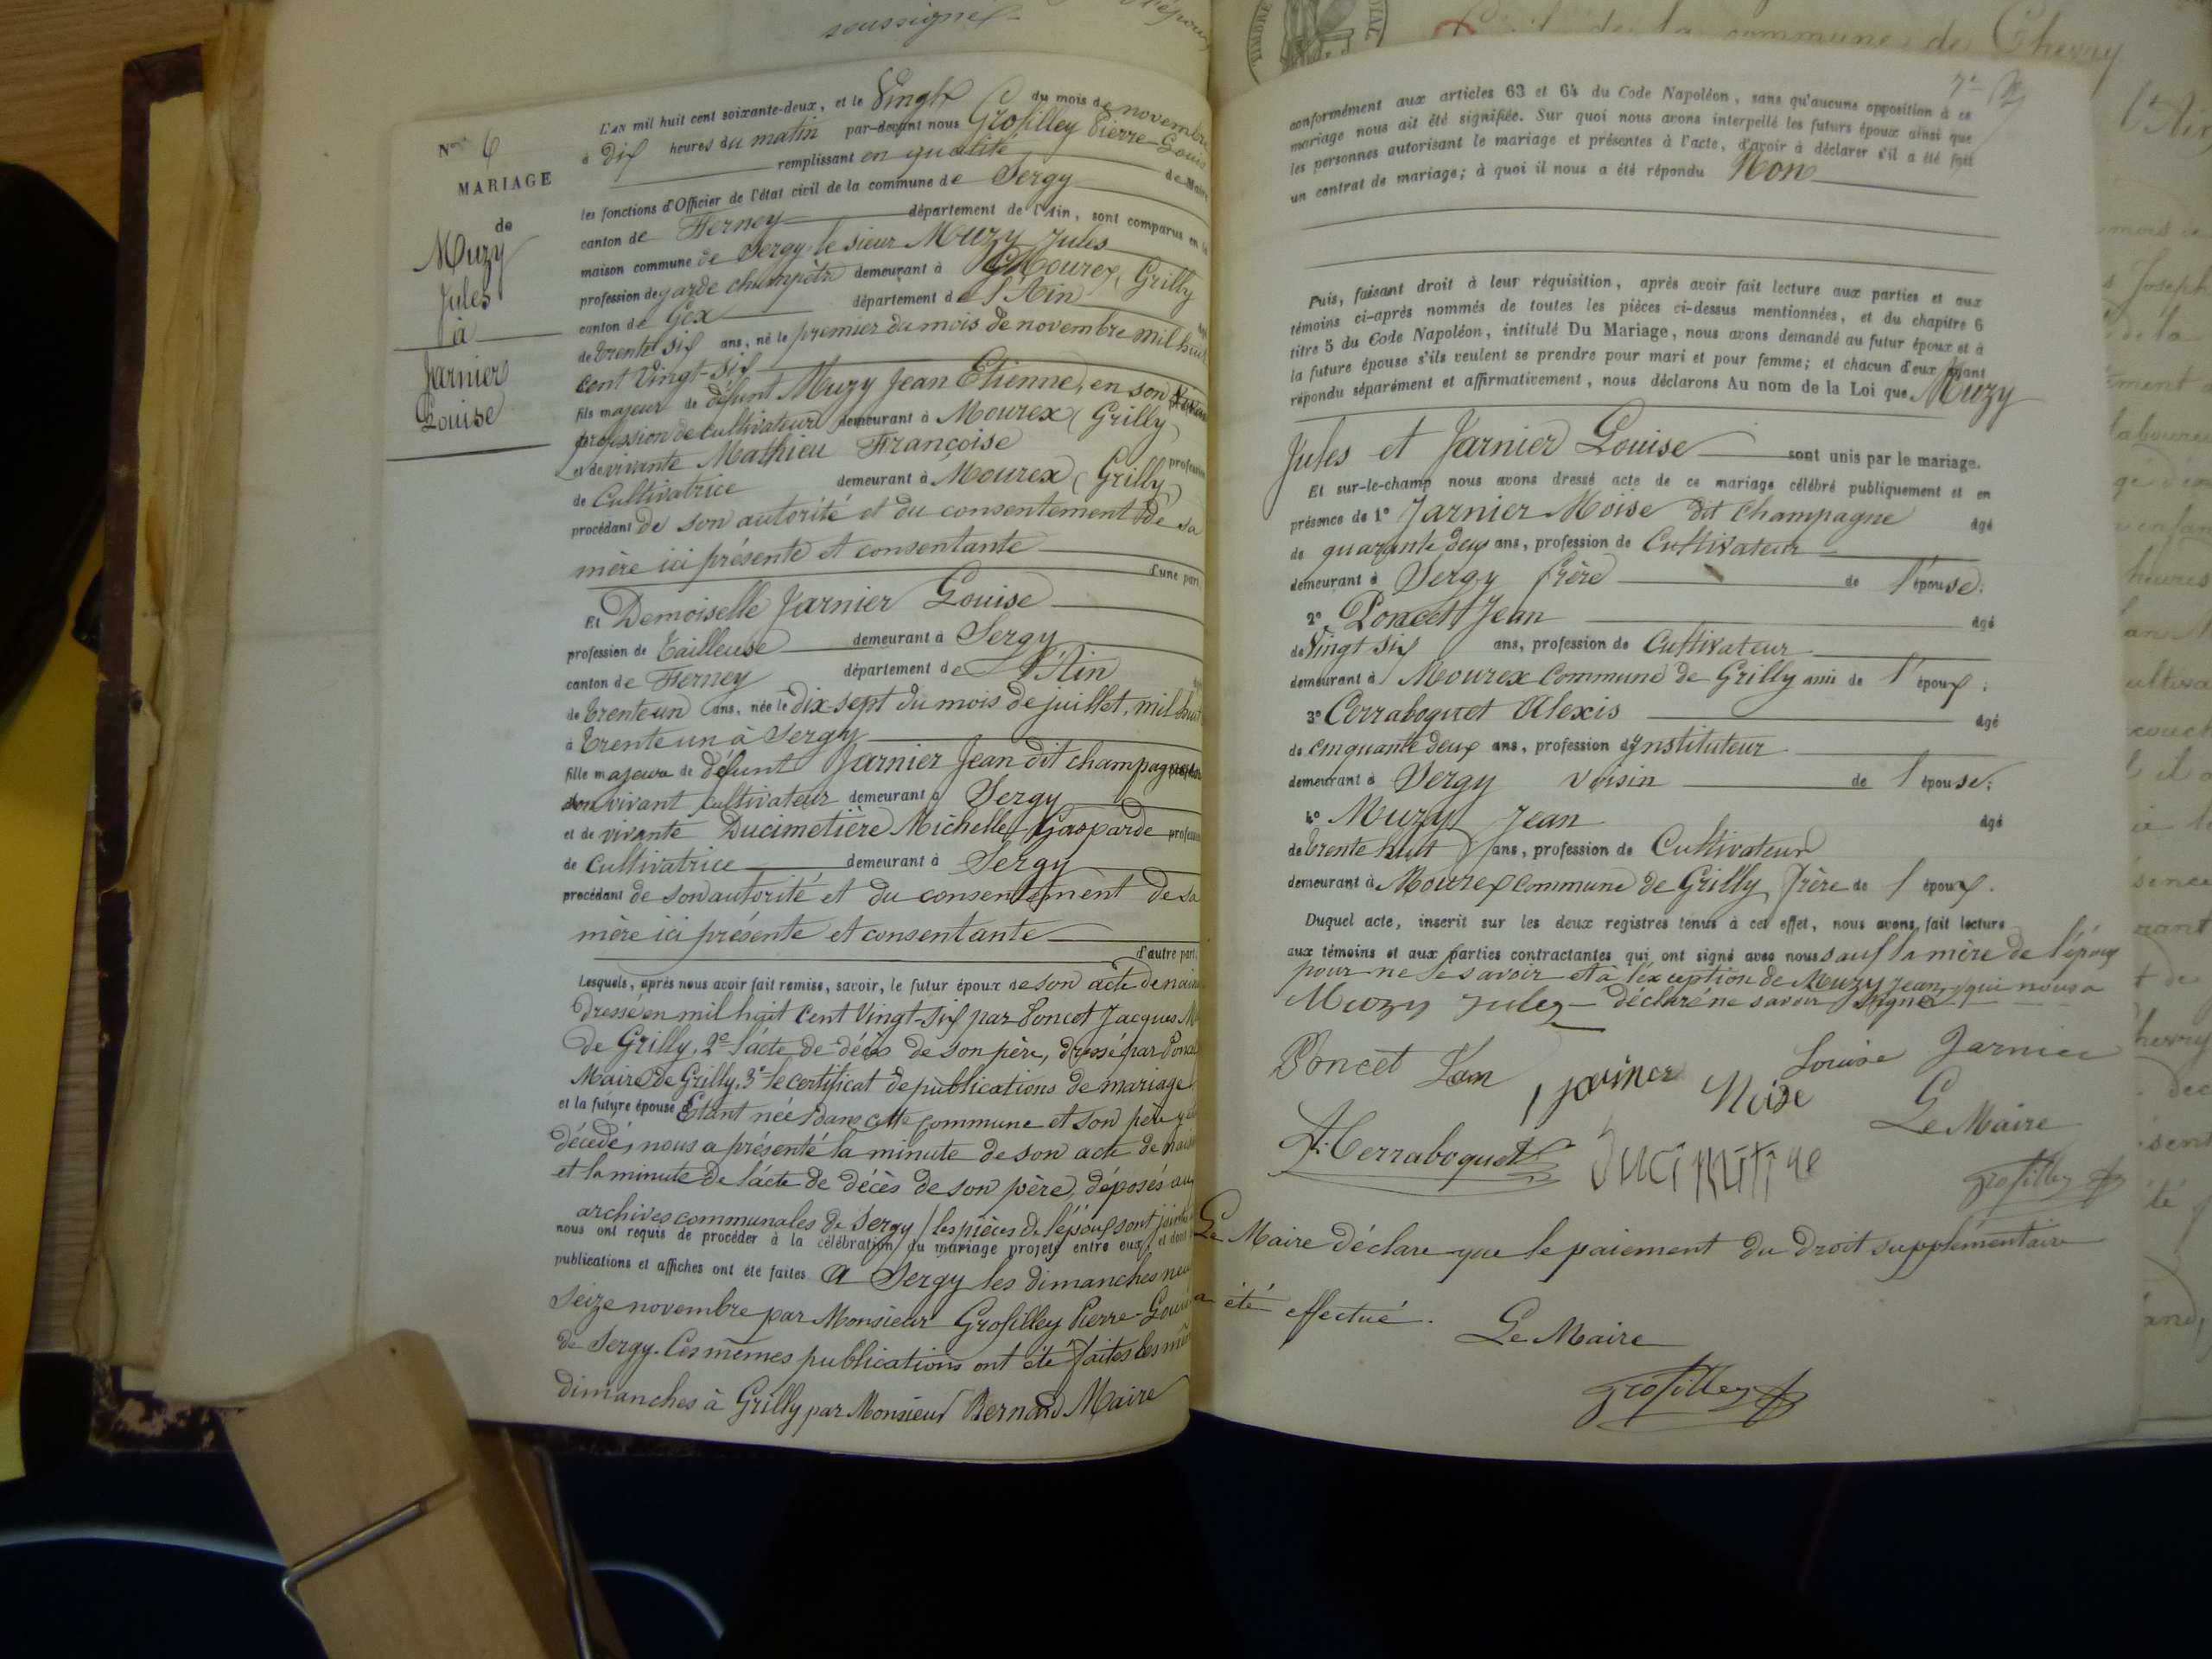 soussignés
N° 6
MARIAGE
de
Muzy
Jules
à
Jarnier
Louise
L'AN mil huit cent soixante-deux, et le Vingt du mois de novembre
à dix heures du matin par-devant nous Grosfilley Pierre-Louis
remplissant en qualité de Maire
les fonctions d'Officier de l'état civil de la commune de Sergy
canton de Ferney département de l'Ain, sont comparus en la
maison commune de Sergy le sieur Muzy Jules
profession de garde champêtre demeurant à Mourex (Grilly
canton de Gex département de l'Ain
de trente six ans, né le premier du mois de novembre mil huit
cent Vingt-six
fils majeur de défunt Muzy Jean Etienne, en son vivant
profession de cultivateur demeurant à Mourex (Grilly)
et de vivante Mathieu Françoise profession
de Cultivatrice demeurant à Mourex (Grilly)
procédant de son autorité et du consentement de sa
mère ici présente et consentante
d'une part.
Et Demoiselle Jarnier Louise
profession de Tailleuse demeurant à Sergy
canton de Ferney département de l'Ain
de trente un ans, née le dix-sept du mois de juillet, mil huit
à trente un à Sergy
fille majeure de défunt Jarnier Jean dit champagne
son vivant cultivateur demeurant à Sergy
et de vivante Ducimetière Michelle Gasparde profession
de Cultivatrice demeurant à Sergy
procédant de son autorité et du consentement de sa
mère ici présente et consentante
d'autre part.
Lesquels, après nous avoir fait remise, savoir, le futur époux de son acte de
dressé en mil huit cent Vingt-six par Poncet Jacques
de Grilly, 2° l'acte de décès de son père, dressé par
Maire de Grilly, 3° le certificat de publications de mariage
et la future épouse Étant née dans cette commune et son père y
décédé, nous a présenté la minute de son acte de
et la minute de l'acte de décès de son père, déposés aux
archives communales de Sergy / les pièces de l'époux sont
nous ont requis de procéder à la célébration du mariage projeté entre eux, et dont
publications et affiches ont été faites A Sergy les dimanches neuf
Seize novembre par Monsieur Grosfilley Pierre-Louis
de Sergy. Ces mêmes publications ont été faites les
dimanches à Grilly par Monsieur Bernard Maire
conformément aux articles 63 et 64 du Code Napoléon, sans qu'aucune opposition à ce
mariage nous ait été signifiée. Sur quoi nous avons interpellé les futurs époux ainsi que
les personnes autorisant le mariage et présentes à l'acte, d'avoir à déclarer s'il a été fait
un contrat de mariage; à quoi il nous a été répondu Non
Puis, faisant droit à leur réquisition, après avoir fait lecture aux parties et aux
témoins ci-après nommés de toutes les pièces ci-dessus mentionnées, et du chapitre 6
titre 5 du Code Napoléon, intitulé Du Mariage, nous avons demandé au futur époux et à
la future épouse s'ils veulent se prendre pour mari et pour femme; et chacun d'eux ayant
répondu séparément et affirmativement, nous déclarons Au nom de la Loi que Muzy
Jules et Jarnier Louise sont unis par le mariage.
Et sur-le-champ nous avons dressé acte de ce mariage célébré publiquement et en
présence de 1° Jarnier Moise dit Champagne âgé
de quarante deux ans, profession de Cultivateur
demeurant à Sergy frère de l'épouse;
2° Poncet Jean âgé
de Vingt six ans, profession de Cultivateur
demeurant à Mourex Commune de Grilly ami de l'époux;
3° Cerraboquet Alexis âgé
de cinquante deux ans, profession d'Instituteur
demeurant à Sergy voisin de l'épouse;
4° Muzy Jean âgé
de trente huit ans, profession de Cultivateur
demeurant à Mourex commune de Grilly, frère de l'époux.
Duquel acte, inscrit sur les deux registres tenus à cet effet, nous avons fait lecture
aux témoins et aux parties contractantes qui ont signé avec nous sauf la mère de l'époux
pour ne le savoir et à l'exception de Muzy Jean, qui nous a
Muzy Jules déclaré ne savoir signer
Poncet Jean jarnier Moise Louise Jarnier
Le Maire
A. Cerraboquet Ducimetière Grosfilley
Le Maire déclare que le paiement du droit supplémentaire
a été effectué.
Le Maire
Grosfilley
de la commune de Chevry